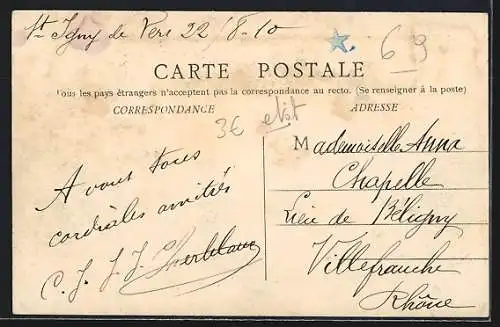 St Igny de Vers 22/8-10
69
CARTE POSTALE
Tous les pays étrangers n'acceptent pas la correspondance au recto. (Se renseigner à la poste)
CORRESPONDANCE
ADRESSE
3€
A vous tous
cordiales amitiés
C. J. J. J.
Mademoiselle Anna
Chapelle
Lieu de Béligny
Villefranche
Rhône